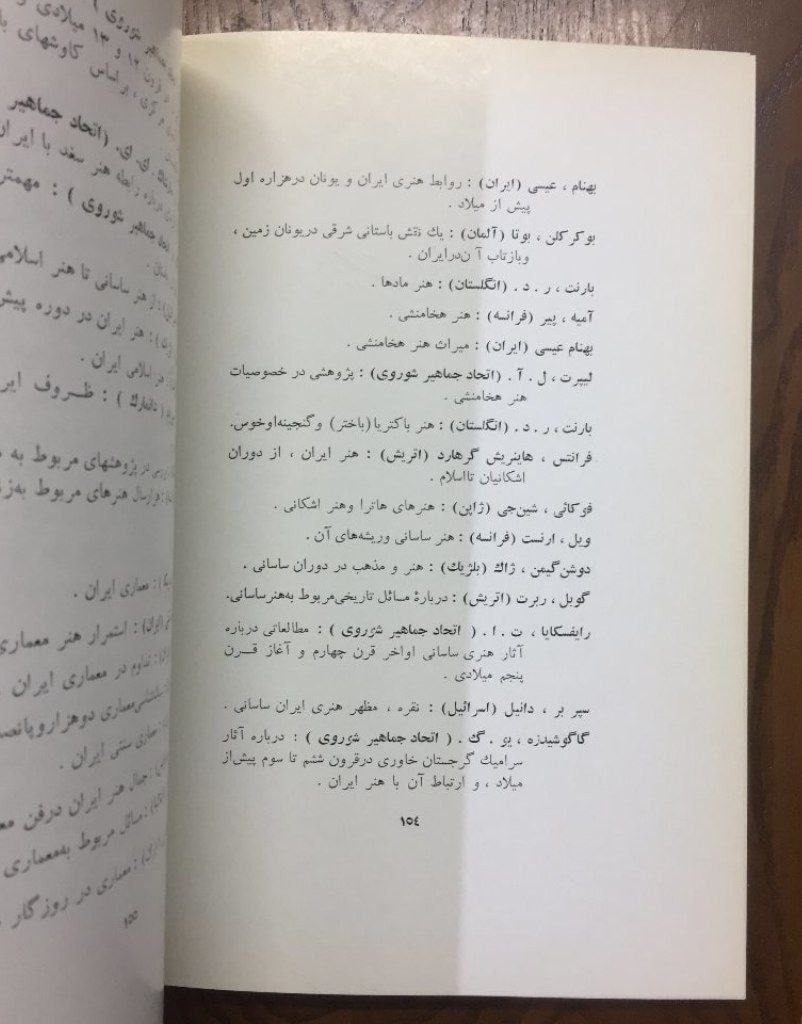 بهنام ، عیسی (ایران) : روابط هنری ایران و یونان درهزاره اول
پیش از میلاد .
بوکرکلن ، بوتا (آلمان) : یك نقش باستانی شرقی دریونان زمین ،
وبازتاب آن‌درایران .
بارنت ، ر . د . (انگلستان) : هنر مادها .
آمیه ، پیر (فرانسه) : هنر هخامنشی .
بهنام عیسی (ایران) : میراث هنر هخامنشی .
لیپرت ، ل . آ . (اتحاد جماهیر شوروی) : پژوهشی در خصوصیات
هنر هخامنشی .
بارنت ، ر . د . (انگلستان) : هنر باکتریا (باختر) وگنجینه‌اوخوس.
فرانتس ، هاینریش گرهارد (اتریش) : هنر ایران ، از دوران
اشکانیان تااسلام .
فوکائی ، شین‌جی (ژاپن) : هنرهای هاترا وهنر اشکانی .
ویل ، ارنست (فرانسه) : هنر ساسانی وریشه‌های آن .
دوشن‌گیمن ، ژاك (بلژیك) : هنر و مذهب در دوران ساسانی .
گوبل ، ربرت (اتریش) : دربارهٔ مسائل تاریخی‌مربوط به‌هنرساسانی.
رایفسکایا ، ت . ا . ( اتحاد جماهیر شوروی ) : مطالعاتی درباره
آثار هنری ساسانی اواخر قرن چهارم و آغاز قرن
پنجم میلادی .
سپر بر ، دانیل (اسرائیل) : نقره ، مظهر هنری ایران ساسانی .
گاگوشیدزه ، یو . گ . ( اتحاد جماهیر شوروی ) : درباره آثار
سرامیك گرجستان خاوری درقرون ششم تا سوم پیش‌از
میلاد ، و ارتباط آن با هنر ایران .
۱۵۴
میلادی
کاوشهای
(اتحاد جماهیر
رابطه هنر سغد با ایران
جماهیر شوروی ) : مهمترین
هنر ساسانی تا هنر اسلامی
هنر ایران در دوره پیش
اسلامی ایران .
( دانمارك ) : ظروف
در پژوهشهای مربوط به
هنرهای مربوط
: معماری ایران .
(ایران) : استمرار هنر معماری
: تداوم در معماری ایران
معماری
سنتی ایران .
هنر ایران درفن
: مسائل مربوط به‌معماری
: معماری در روزگار
۱۵۵